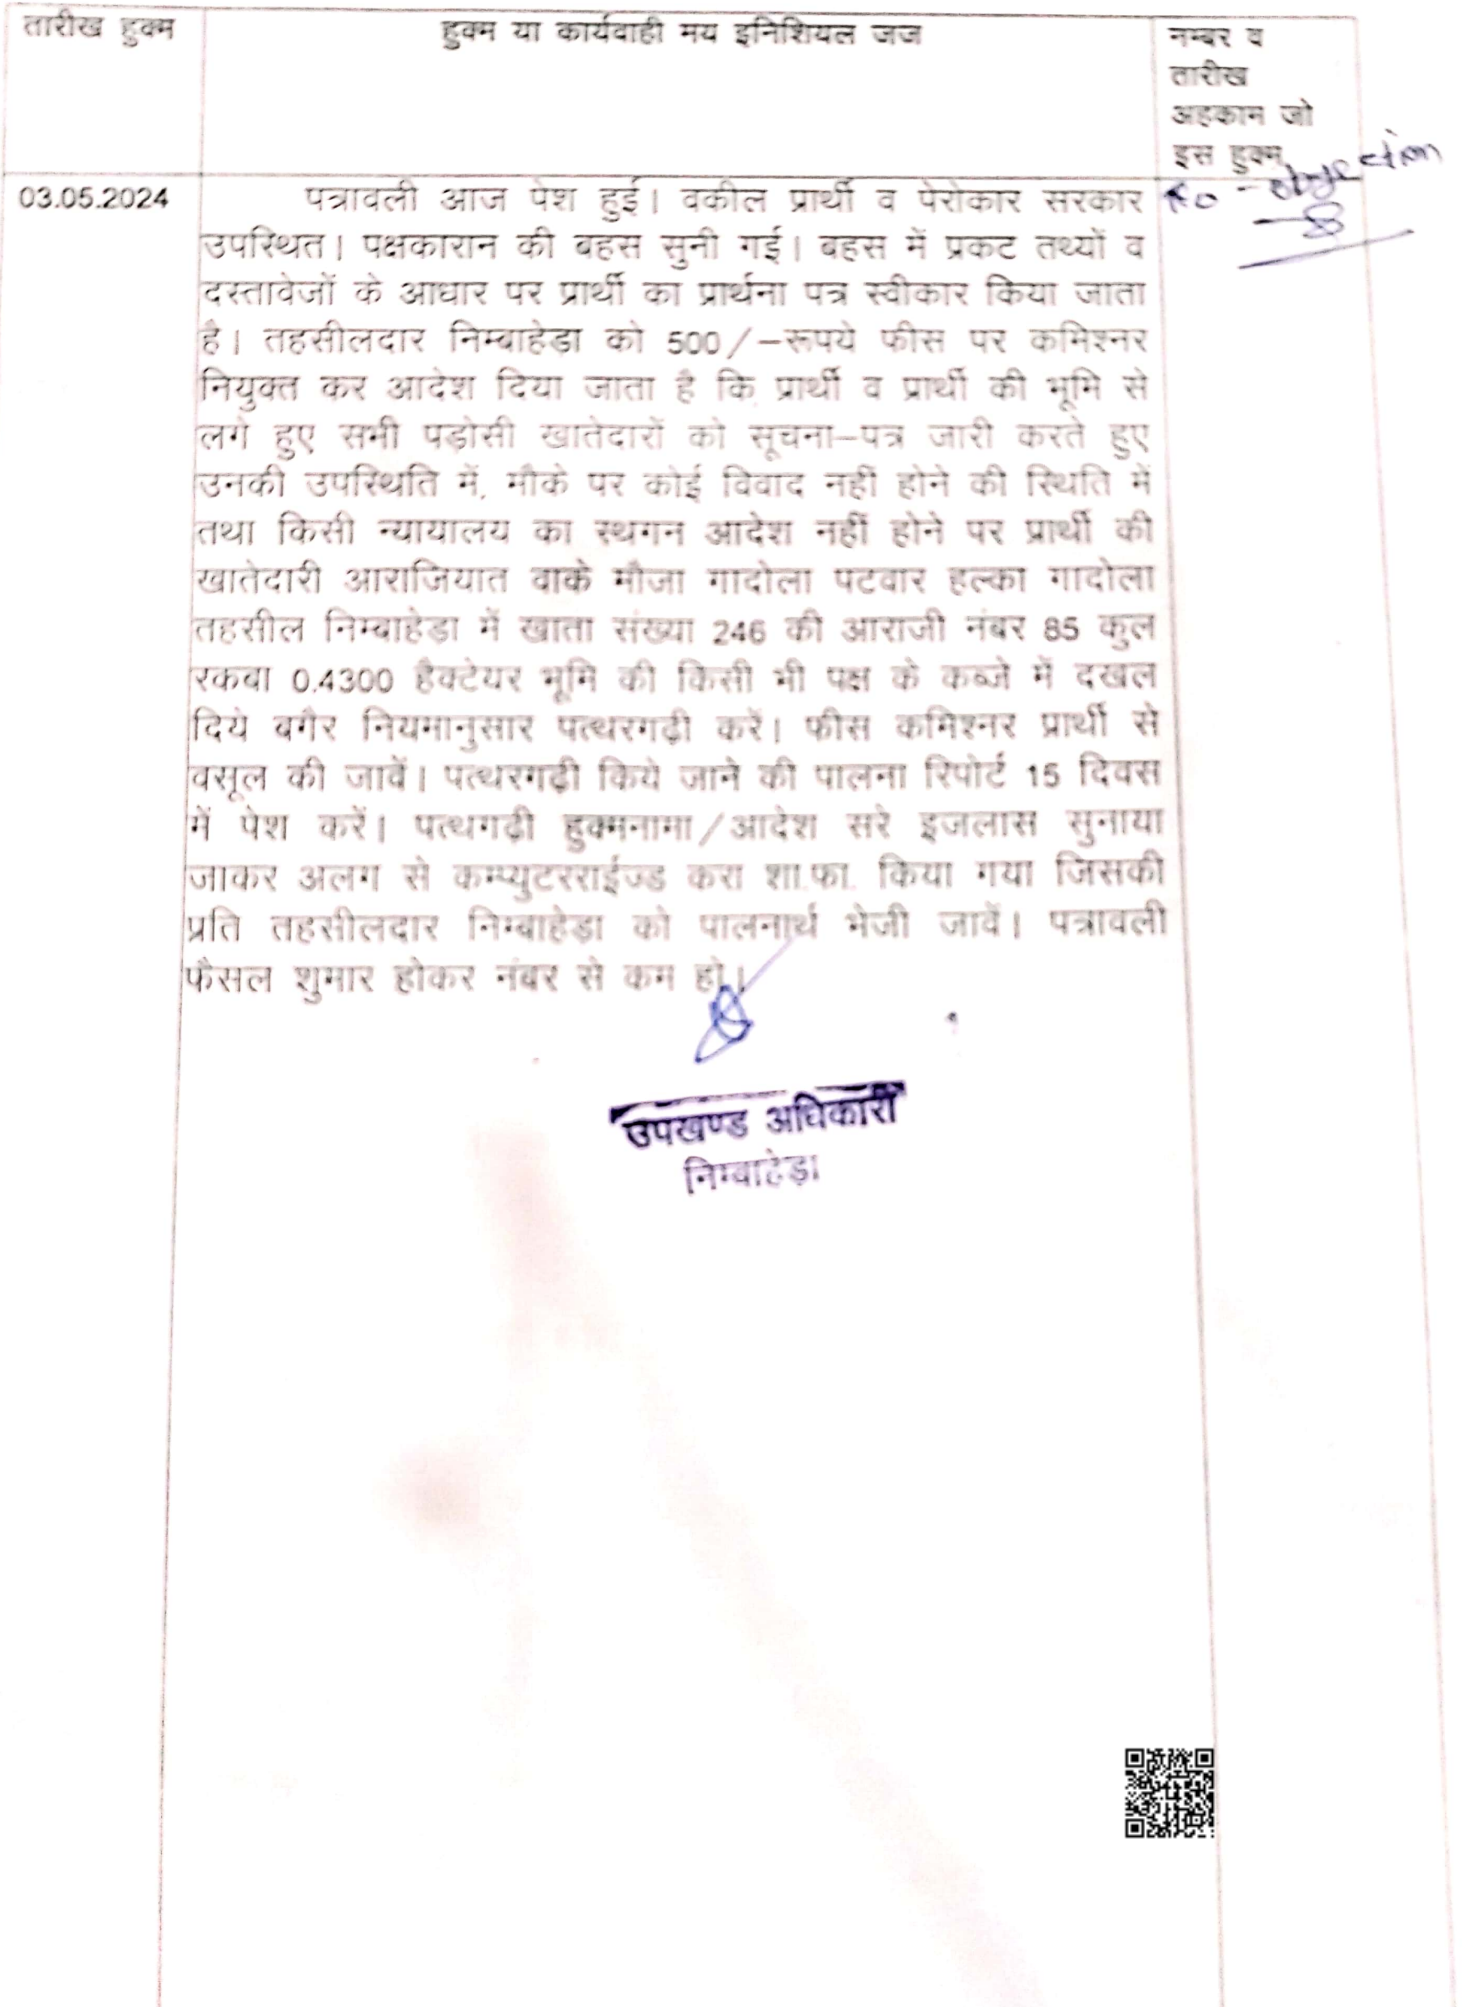 तारीख हुक्म
हुक्म या कार्यवाही मय इनिशियल जज
नम्बर व
तारीख
अहकाम जो
इस हुक्म
No - objection
03.05.2024
पत्रावली आज पेश हुई। वकील प्रार्थी व पेरोकार सरकार
उपस्थित। पक्षकारान की बहस सुनी गई। बहस में प्रकट तथ्यों व
दस्तावेजों के आधार पर प्रार्थी का प्रार्थना पत्र स्वीकार किया जाता
है। तहसीलदार निम्बाहेडा को 500/–रूपये फीस पर कमिश्नर
नियुक्त कर आदेश दिया जाता है कि प्रार्थी व प्रार्थी की भूमि से
लगे हुए सभी पड़ोसी खातेदारों को सूचना–पत्र जारी करते हुए
उनकी उपस्थिति में, मौके पर कोई विवाद नहीं होने की स्थिति में
तथा किसी न्यायालय का स्थगन आदेश नहीं होने पर प्रार्थी की
खातेदारी आराजियात वाके मौजा गादोला पटवार हल्का गादोला
तहसील निम्बाहेडा में खाता संख्या 246 की आराजी नंबर 85 कुल
रकबा 0.4300 हैक्टेयर भूमि की किसी भी पक्ष के कब्जे में दखल
दिये बगैर नियमानुसार पत्थरगढ़ी करें। फीस कमिश्नर प्रार्थी से
वसूल की जावें। पत्थरगढ़ी किये जाने की पालना रिपोर्ट 15 दिवस
में पेश करें। पत्थगढ़ी हुक्मनामा/आदेश सरे इजलास सुनाया
जाकर अलग से कम्प्युटरराईज्ड करा शा.फा. किया गया जिसकी
प्रति तहसीलदार निम्बाहेड़ा को पालनार्थ भेजी जावें। पत्रावली
फैसल शुमार होकर नंबर से कम हो।
उपखण्ड अधिकारी
निम्बाहेड़ा